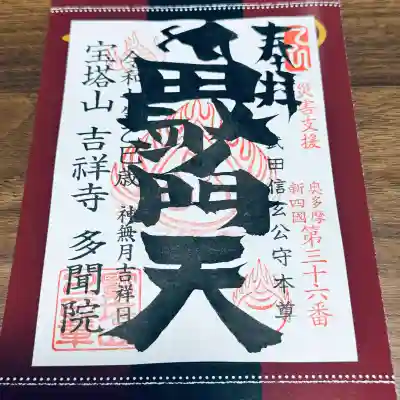 災害支援
奥多摩
新四國
第三十六番
奉拝
武田信玄公守本尊
毘沙門天
令和七年乙巳歳 神無月吉祥日
宝塔山 吉祥寺 多聞院